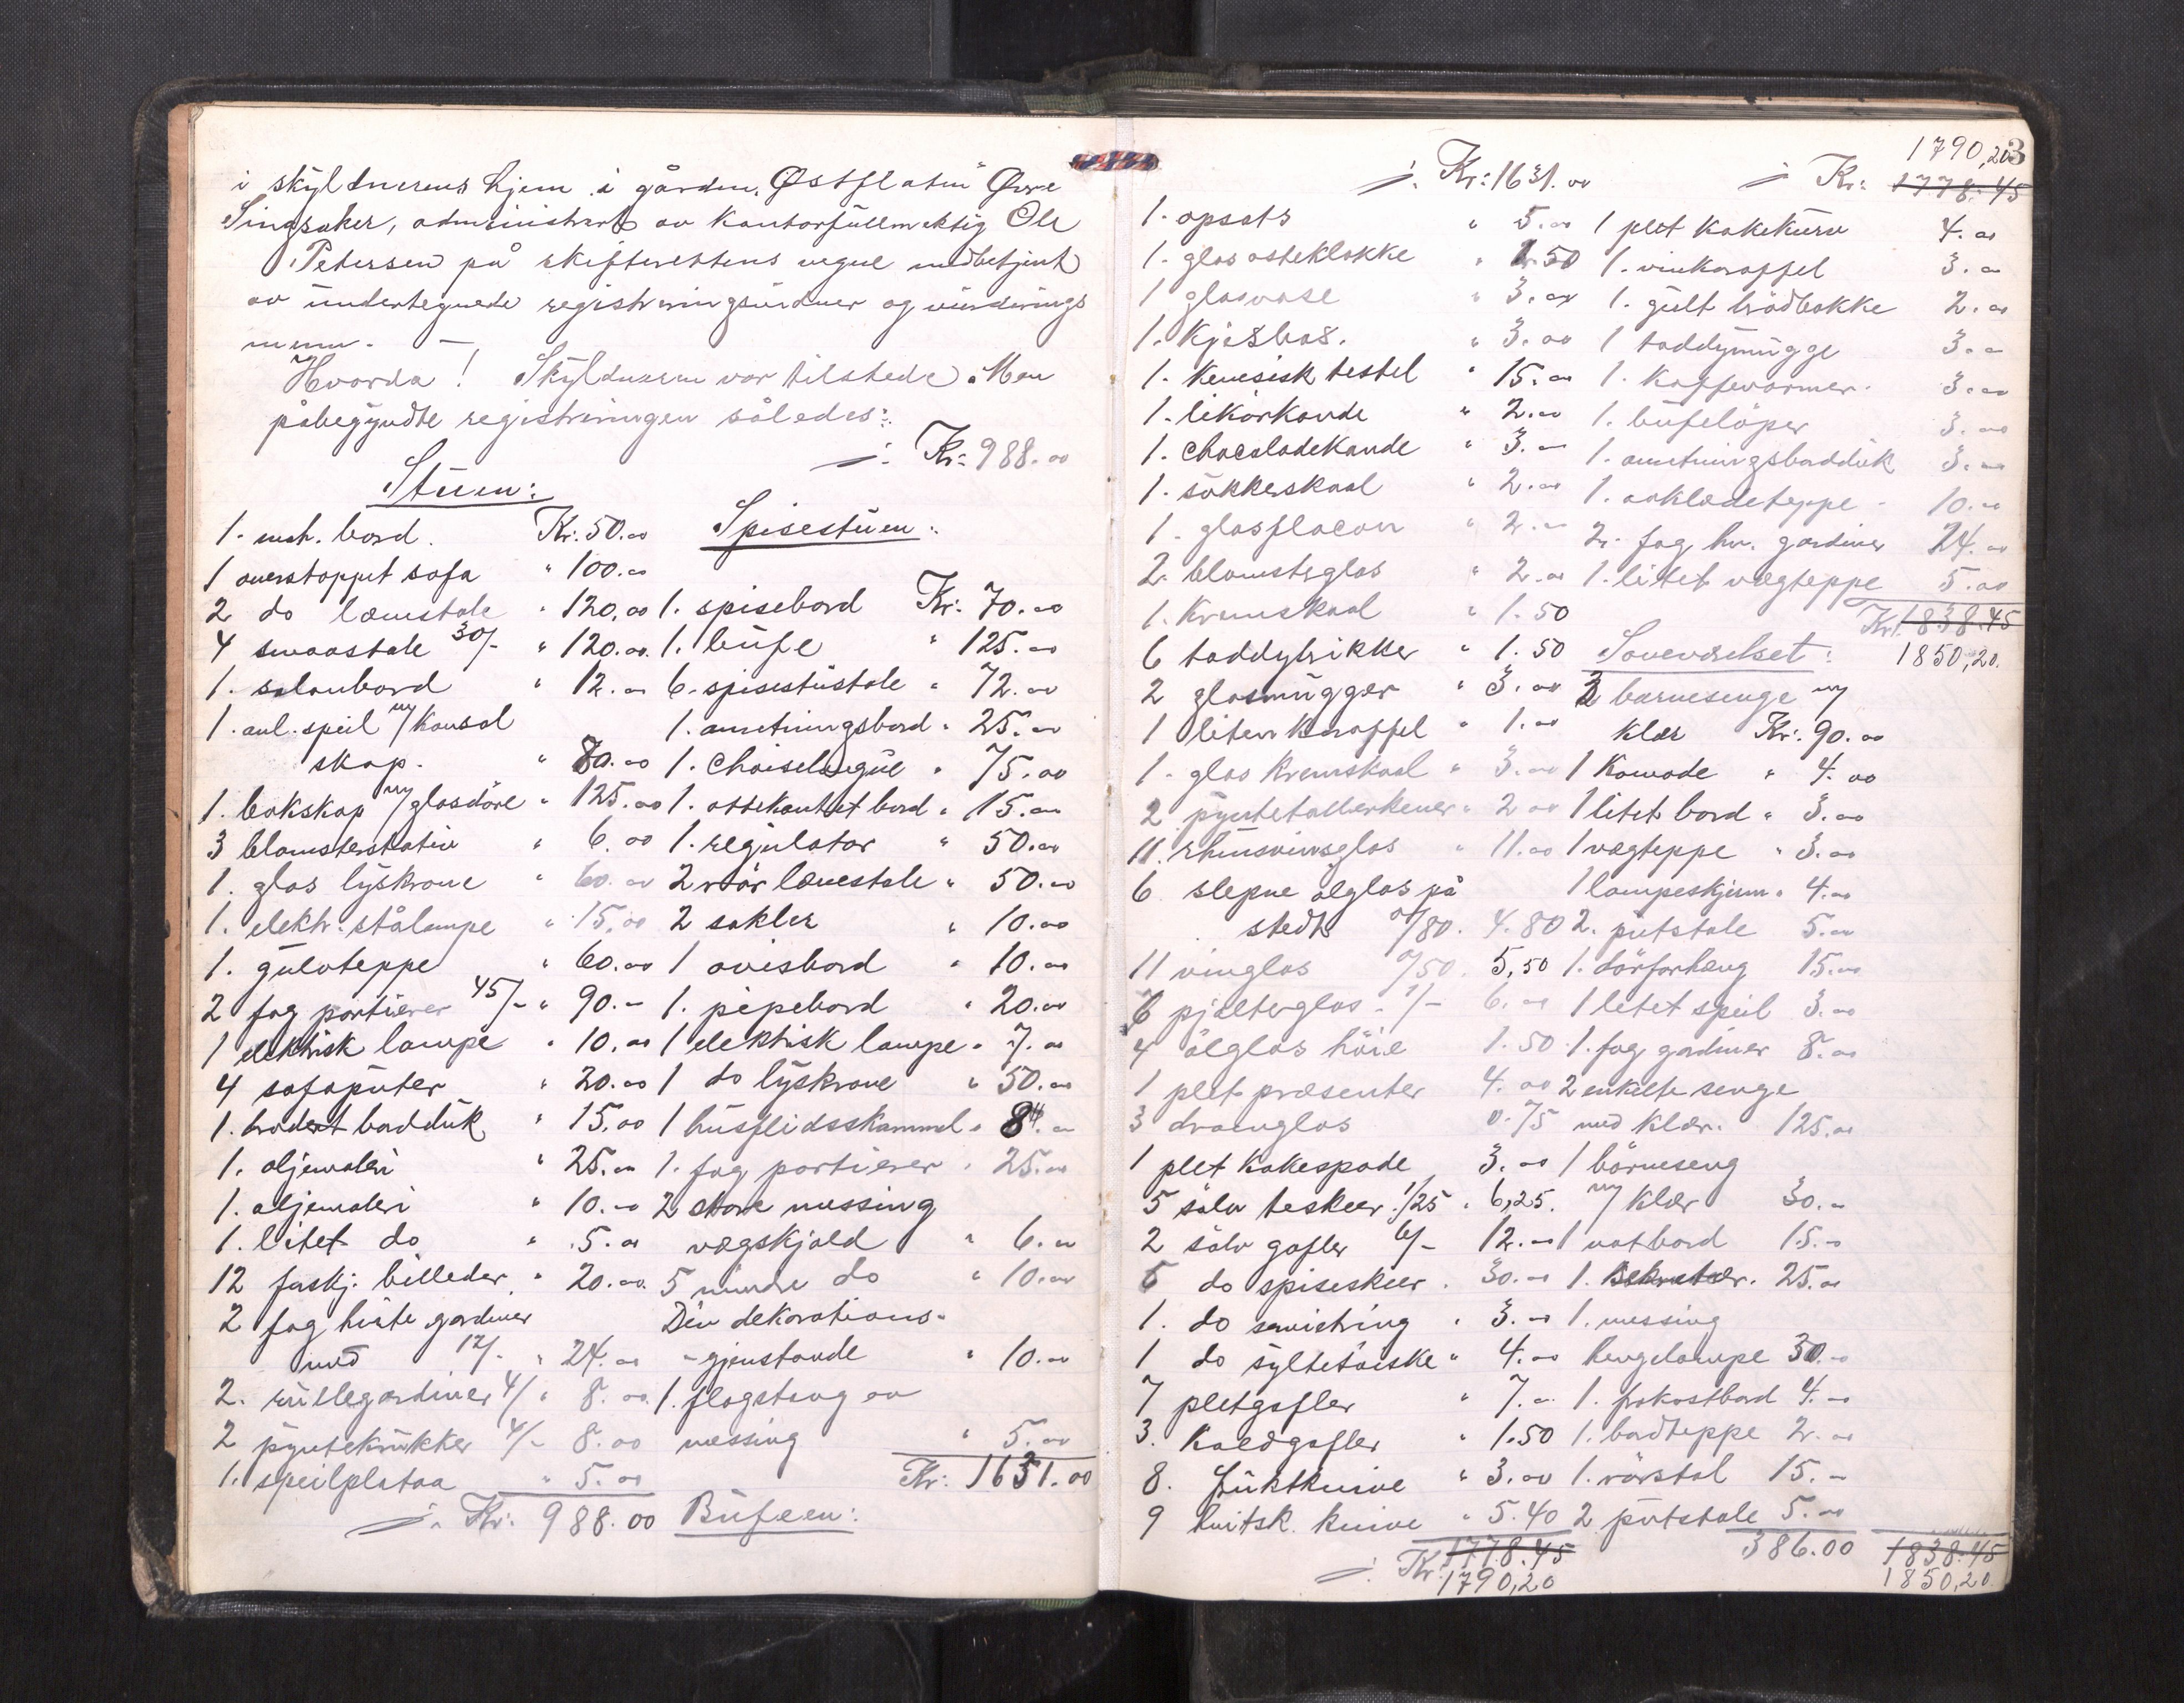 i skyldnerens hjem i gården "Østflaten" Øvre
Singsaker, administrert av kontorfullmektig Ole
Petersen på skifterettens vegne medbetjent
av undertegnede registreringsvidner og vurderings
menn. —
Hvorda! Skyldneren var tilstede. Man
påbegyndte registreringen således:
Stuen:
1. mah. bord. Kr: 50.00
1 overstoppet sofa " 100.00
2 do lænstole " 120,00
4 smaastole 30/- " 120.00
1. salonbord " 12.00
1. avl. speil m/ konsol
skap. " 80.00
1. bokskap m/ glasdöre " 125.00
3 blomsterstativ " 6.00
1. glas lyskrone " 60.00
1. elektr. stålampe " 15,00
1. gulvteppe " 60.00
2 fag portierer 45/- " 90.-
1 elektrisk lampe " 10.00
4 sofaputer " 20.00
1. brodert bordduk " 15,00
1. oljemaleri " 25.00
1. oljemaleri " 10.00
1. litet do " 5.00
12 forskj. billeder " 20.00
2 fag hvite gardiner
med 12/- " 24.00
2. rullegardiner 4/ " 8.00
2 pyntekrukker 4/- 8.00
1. speilplataa " 5.00
Kr: 988.00
Kr: 988.00
Spisestuen:
1. spisebord Kr: 70.00
1. bufe " 125.00
6. spisestustole " 72.00
1. anretningsbord " 25.00
1. Chaiselongue " 75.00
1. ottekantet bord " 15.00
1. regulator " 50.00
2 rör lænestole " 50.00
2 sokler " 10.00
1 avisbord " 10.00
1. pipebord " 20.00
1 elektrisk lampe " 7.00
1 do lyskrone " 50.00
1 husflidsskammel " 8.00
1. fag portierer " 25.00
2 store messing
vægskjold " 6.00
5 mindre do " 10.00
Div dekorations-
-gjenstande " 10.00
1. flagstang av
messing " 5.00
Kr: 1631.00
Bufeen:
3
Kr: 1631.00
1. opsats " 5.00
1. glas osteklokke " 1.50
1 glasvase " 3.00
1. Kjeksbos. " 3.00
1. Kinesisk testel " 15.00
1. likörkande " 2.00
1. Chocoladekande " 3.00
1. sukkerskaal " 2.00
1. glasflacon " 2.00
2. blomsterglas " 2.00
1. Kremskaal " 1.50
6 toddytrikker " 1.50
2 glasmugger " 3.00
1 liten karaffel " 1.00
1. glas kremskaal " 3.00
2 pyntetallerkener " 2.00
11. rhinsvinsglas " 11.00
6 slepne ølglas på
stedt 0/80. 4.80
11 vinglas 0/50. 5,50
6 pjolterglas 1/- 6.00
4 ölglas höie 1.50
1 plet præsenter 4.00
3 dramglas 0.75
1 plet kakespade 3.00
5 sölv teskeer 1/25 " 6,25.
2 sölv gafler 6/- 12.00
5 do spiseskeer " 30.00
1. do serviettring " 3.00
1 do syltetöiske " 4.00
7 pletgafler " 7.00
3. Koldgafler " 1.50
8. Fruktknive " 3.00
9 hvitsk. knive " 5.40
Kr: 1778.45
1790,20
1790,20
Kr: 1778.45
1 plet kakekurv 4.00
1. vinkaraffel 3.00
1. gult brödbakke 2.00
1 toddymugge 3.00
1. Kaffevarmer. 3.00
1. bufelöper 3.00
1. anretningsbordduk 3.00
1. avklædeteppe 10.00
2. fag hv. gardiner 24.00
1. litet vægteppe 5.00
Kr: 1838.45
1850,20.
Soveværelset:
2 barnesenge m/
klær Kr: 90.00
1 Komode " 4.00
1 litet bord " 3.00
1 vægteppe " 3.00
1 lampeskjerm " 4.00
2. putstole 5.00
1. dörforhæng 15.00
1 litet speil 3.00
1. fag gardiner 8.00
2 enkelte senge
med klær. 125.00
1 börneseng
m/ klær 30.-
1 natbord 15.-
1. Sekretær. 25.00
1. messing
hengelampe 30.-
1. frokostbord 4.-
1. bordteppe 2.00
1. rörstol 15.-
2 putstole 5.00
386.00
1838.45
1850,20